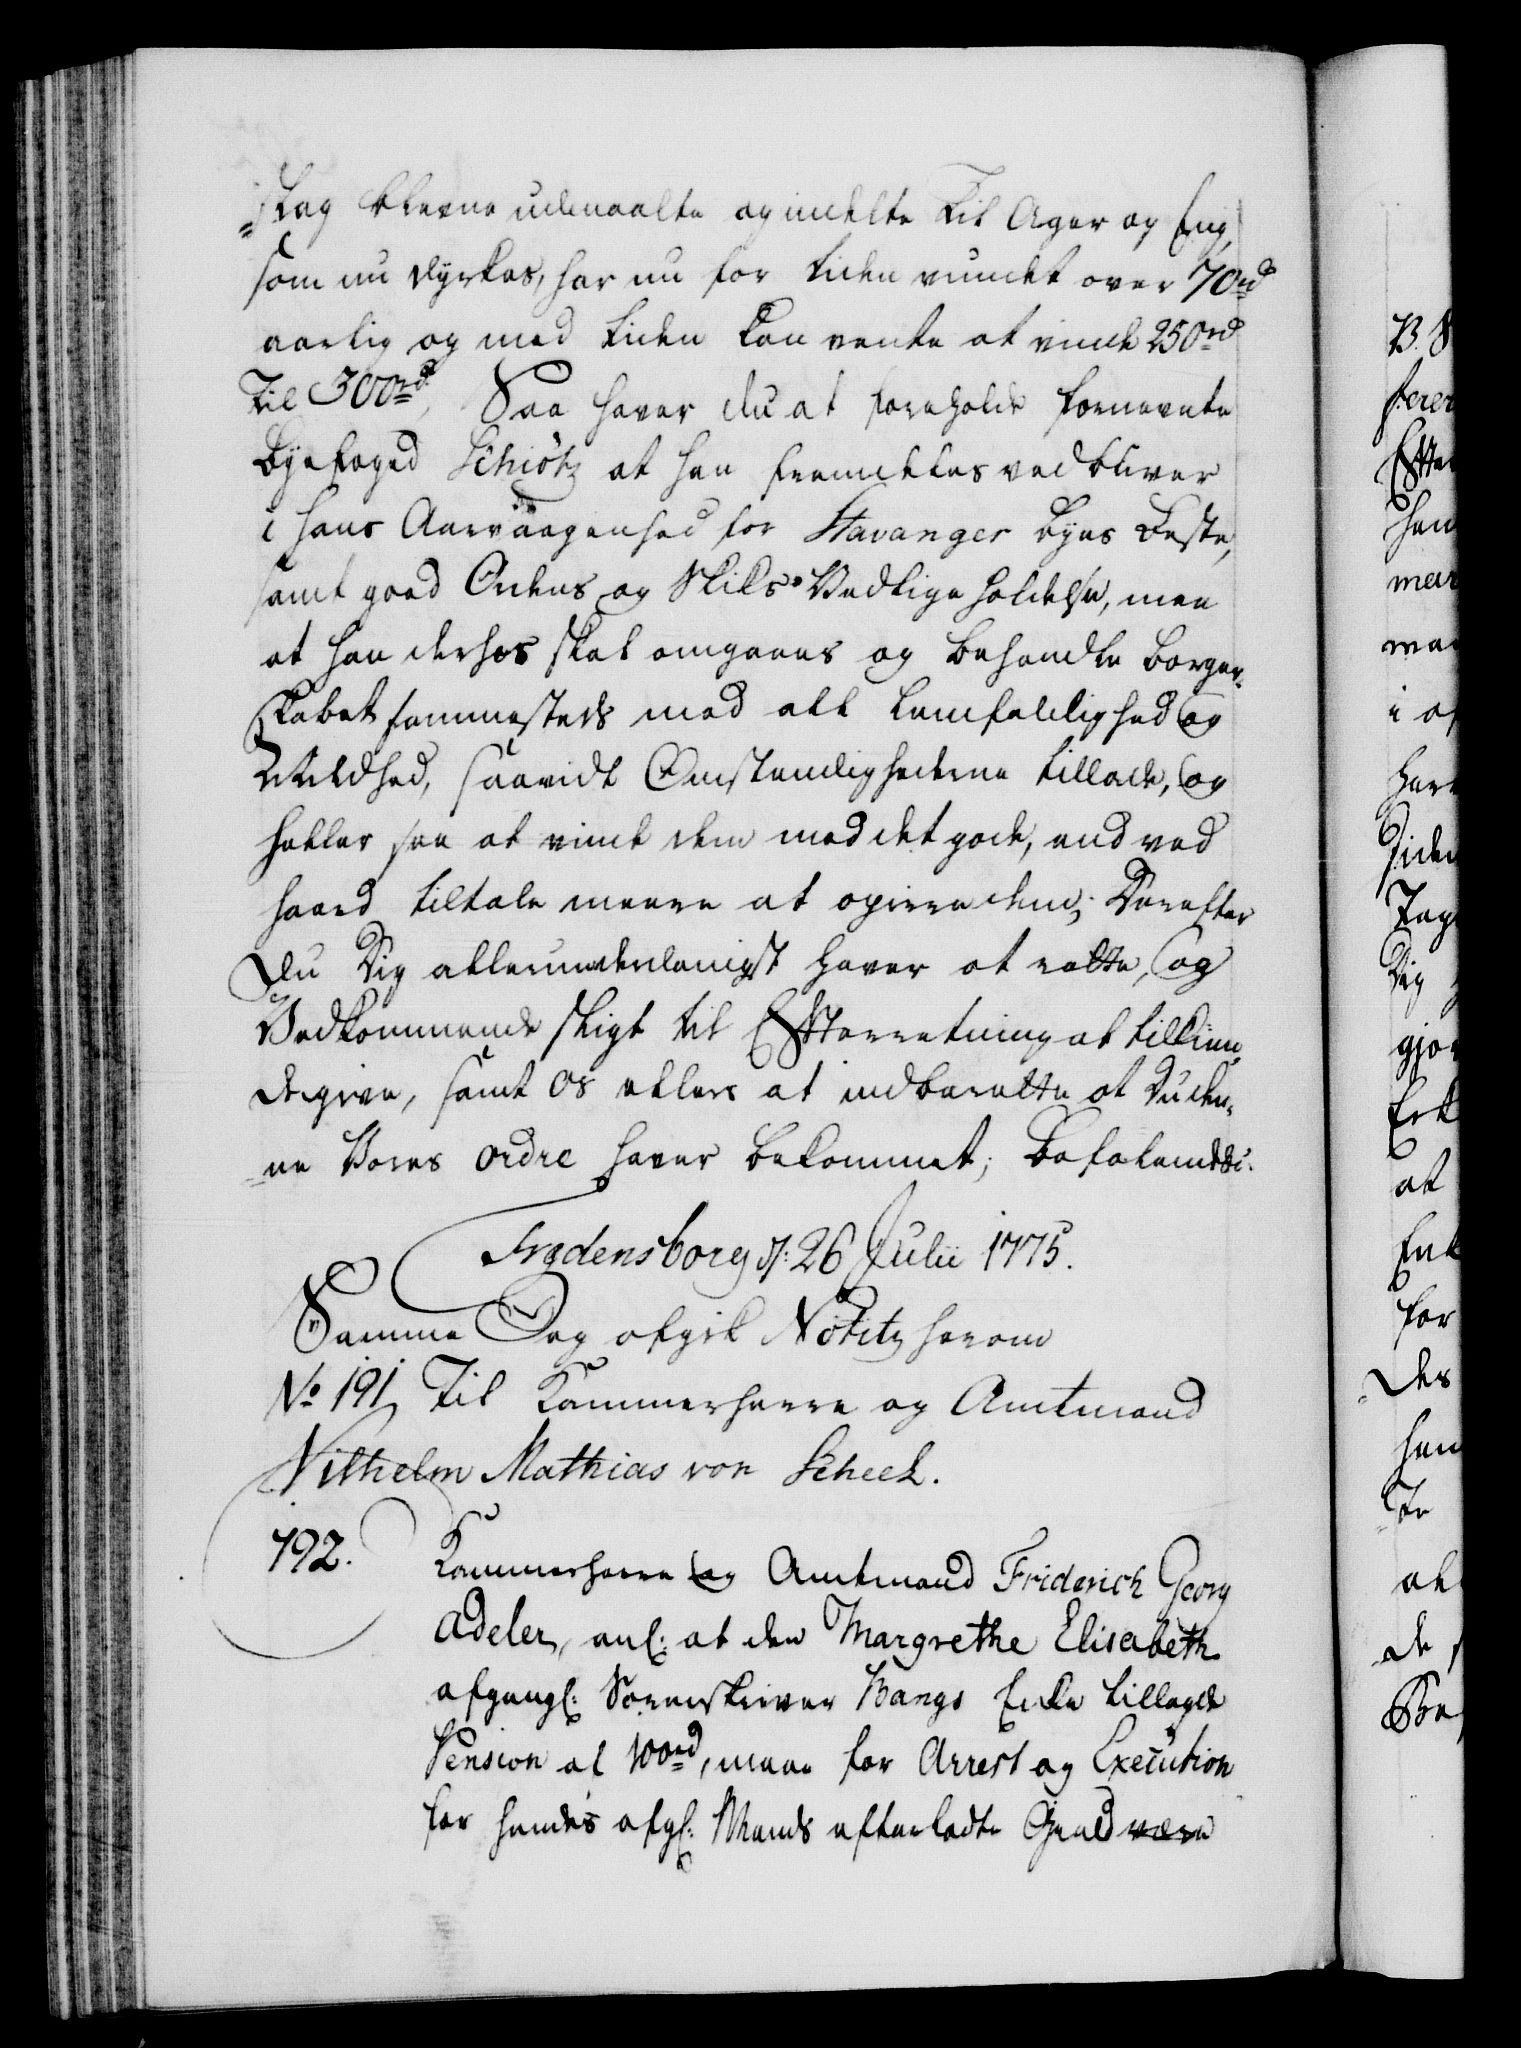 =slag blevne udmaalte og indelte til Ager og Eng,
som nu dyrkes, har nu for tiden vundet over 70 rd
aarlig og med tiden kan vente at vinde 250 rd
til 300 rd, Saa haver du at foreholde fornevnte
Byefoged Schiötz at han fremdeles vedbliver
i hans Aarvaagenhed for Stavanger Byes Beste,
samt goed Ordens og Skiks Vedligeholdelse, men
at han derhos skal omgaaes og behandle Borger-
skabet sammesteds med all Lemfeldighed og
Mildhed, saavidt Omstendighederne tillade, og
heller see at vinde dem med det gode, end ved
haard tiltale meere at opirre dem; Derefter
Du Dig allerunderdanigst haver at rette, og
Vedkommende sligt til Efterretning at tilkien-
degive, samt Os ellers at indberette at Du den-
=ne Vores ordre haver bekommet; Befalendes
Fredensborg d: 26 Julii 1775.
Samme Dag afgik Notitz herom
No 191 til Kammerherre og Amtmand
Vilhelm Mathias von Scheel.
192. Kammerherre og Amtmand Friderich Georg
Adeler, anl: at den Margrethe Elisabeth
afgangl: Sorenskriver Bangs Enke tillagde
Pension af 100 rd, maae for Arrest og Execution
for hendes afgl: Mands efterladte Gield være